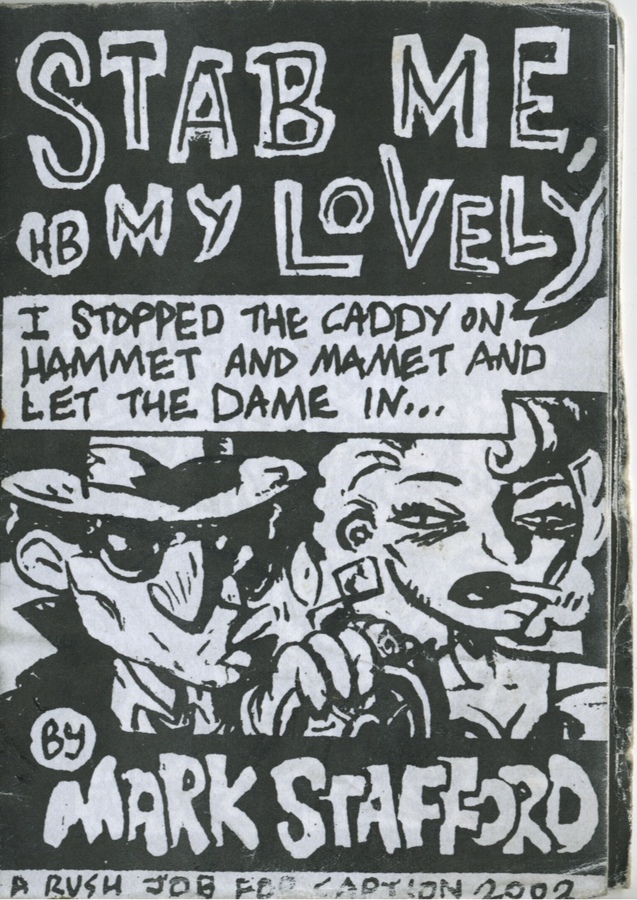 STAB ME,
HB MY LOVELY
I STOPPED THE CADDY ON
HAMMET AND MAMET AND
LET THE DAME IN...
BY
MARK STAFFORD
A RUSH JOB FOR CAPTION 2002